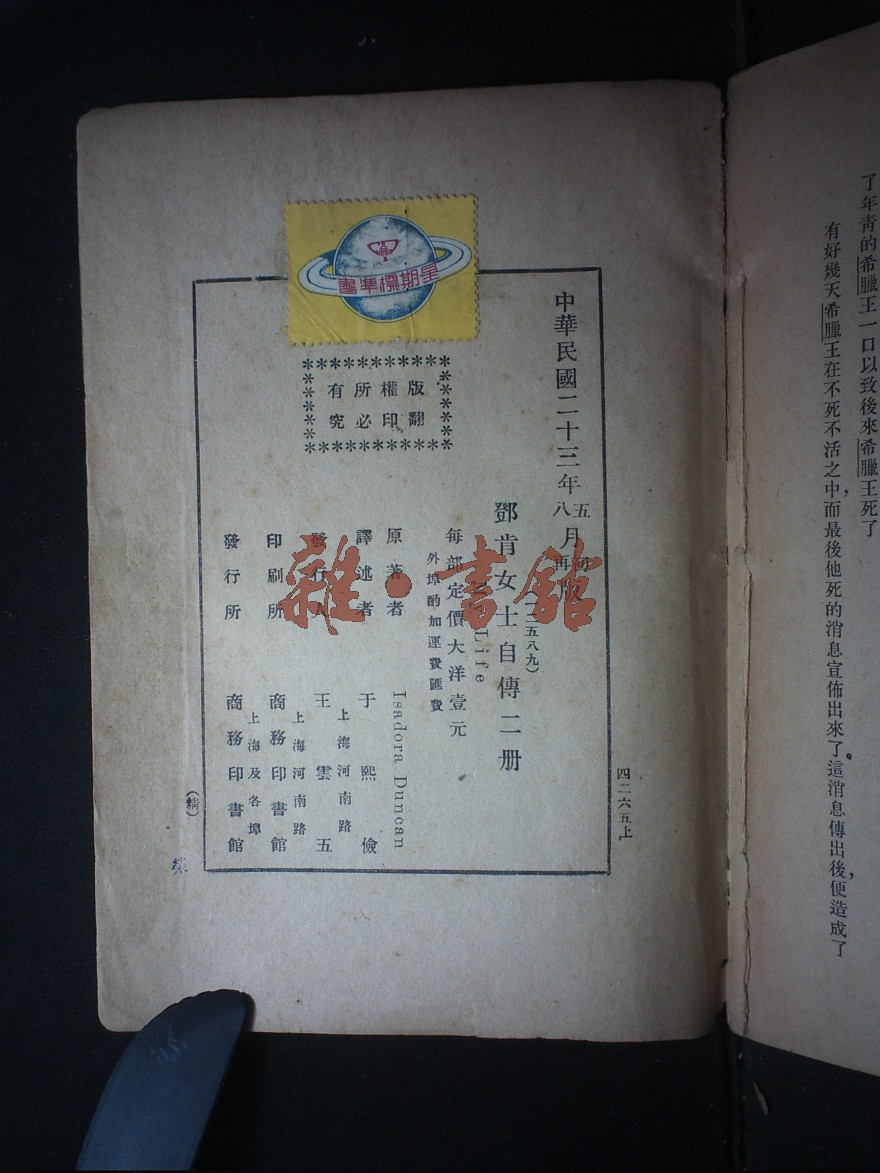 了年靑的希臘王一口以致後來希臘王死了
有好幾天希臘王在不死不活之中，而最後他死的消息宣佈出來了這消息傳出後，便造成了
星期標準書
四二六五上
中華民國二十三年
五月初版
八月再版
(二五八九)
鄧肯女士自傳二册
Life
每部定價大洋壹元
外埠酌加運費匯費
版權所有
翻印必究
原著者 Isadora Duncan
譯述者 于熙儉
發行人 王雲五
上海河南路
印刷所 商務印書館
上海河南路
發行所 商務印書館
上海及各埠
(精)
雜·書館